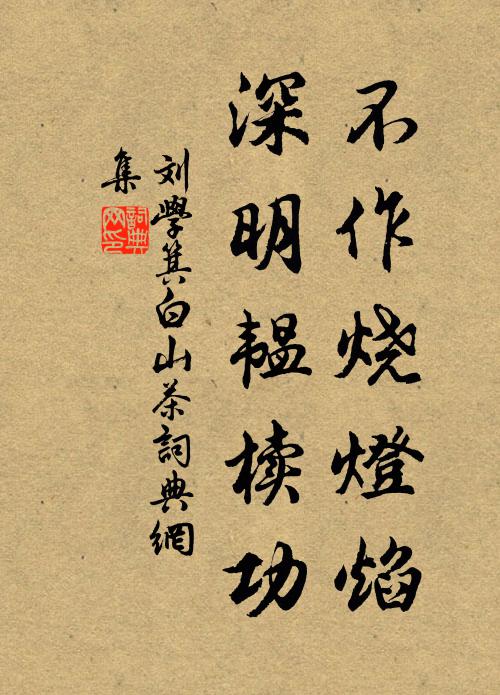 不作烧燈焰
深明韫椟功
刘學箕白山茶詞典網
集
詞典网印